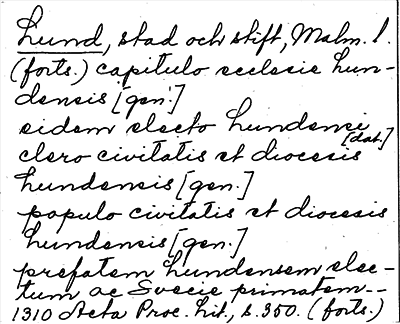 Lund, stad och stift, Malm. l.
(forts.) capitulo ecclesie Lun-
densis [gen.]
eidem electo Lundensi
[dat.]
clero civitatis et diocesis
Lundensis [gen.]
populo civitatis et diocesis
Lundensis [gen.]
prefatem Lundensem elec-
tum ac Svecie primatem--
1310 Acta Proc. lit., s. 350. (forts.)